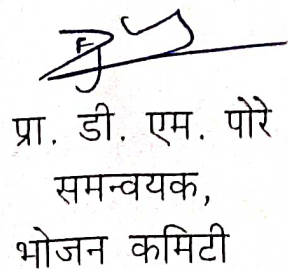 प्रा. डी. एम. पोरे
समन्वयक,
भोजन कमिटी